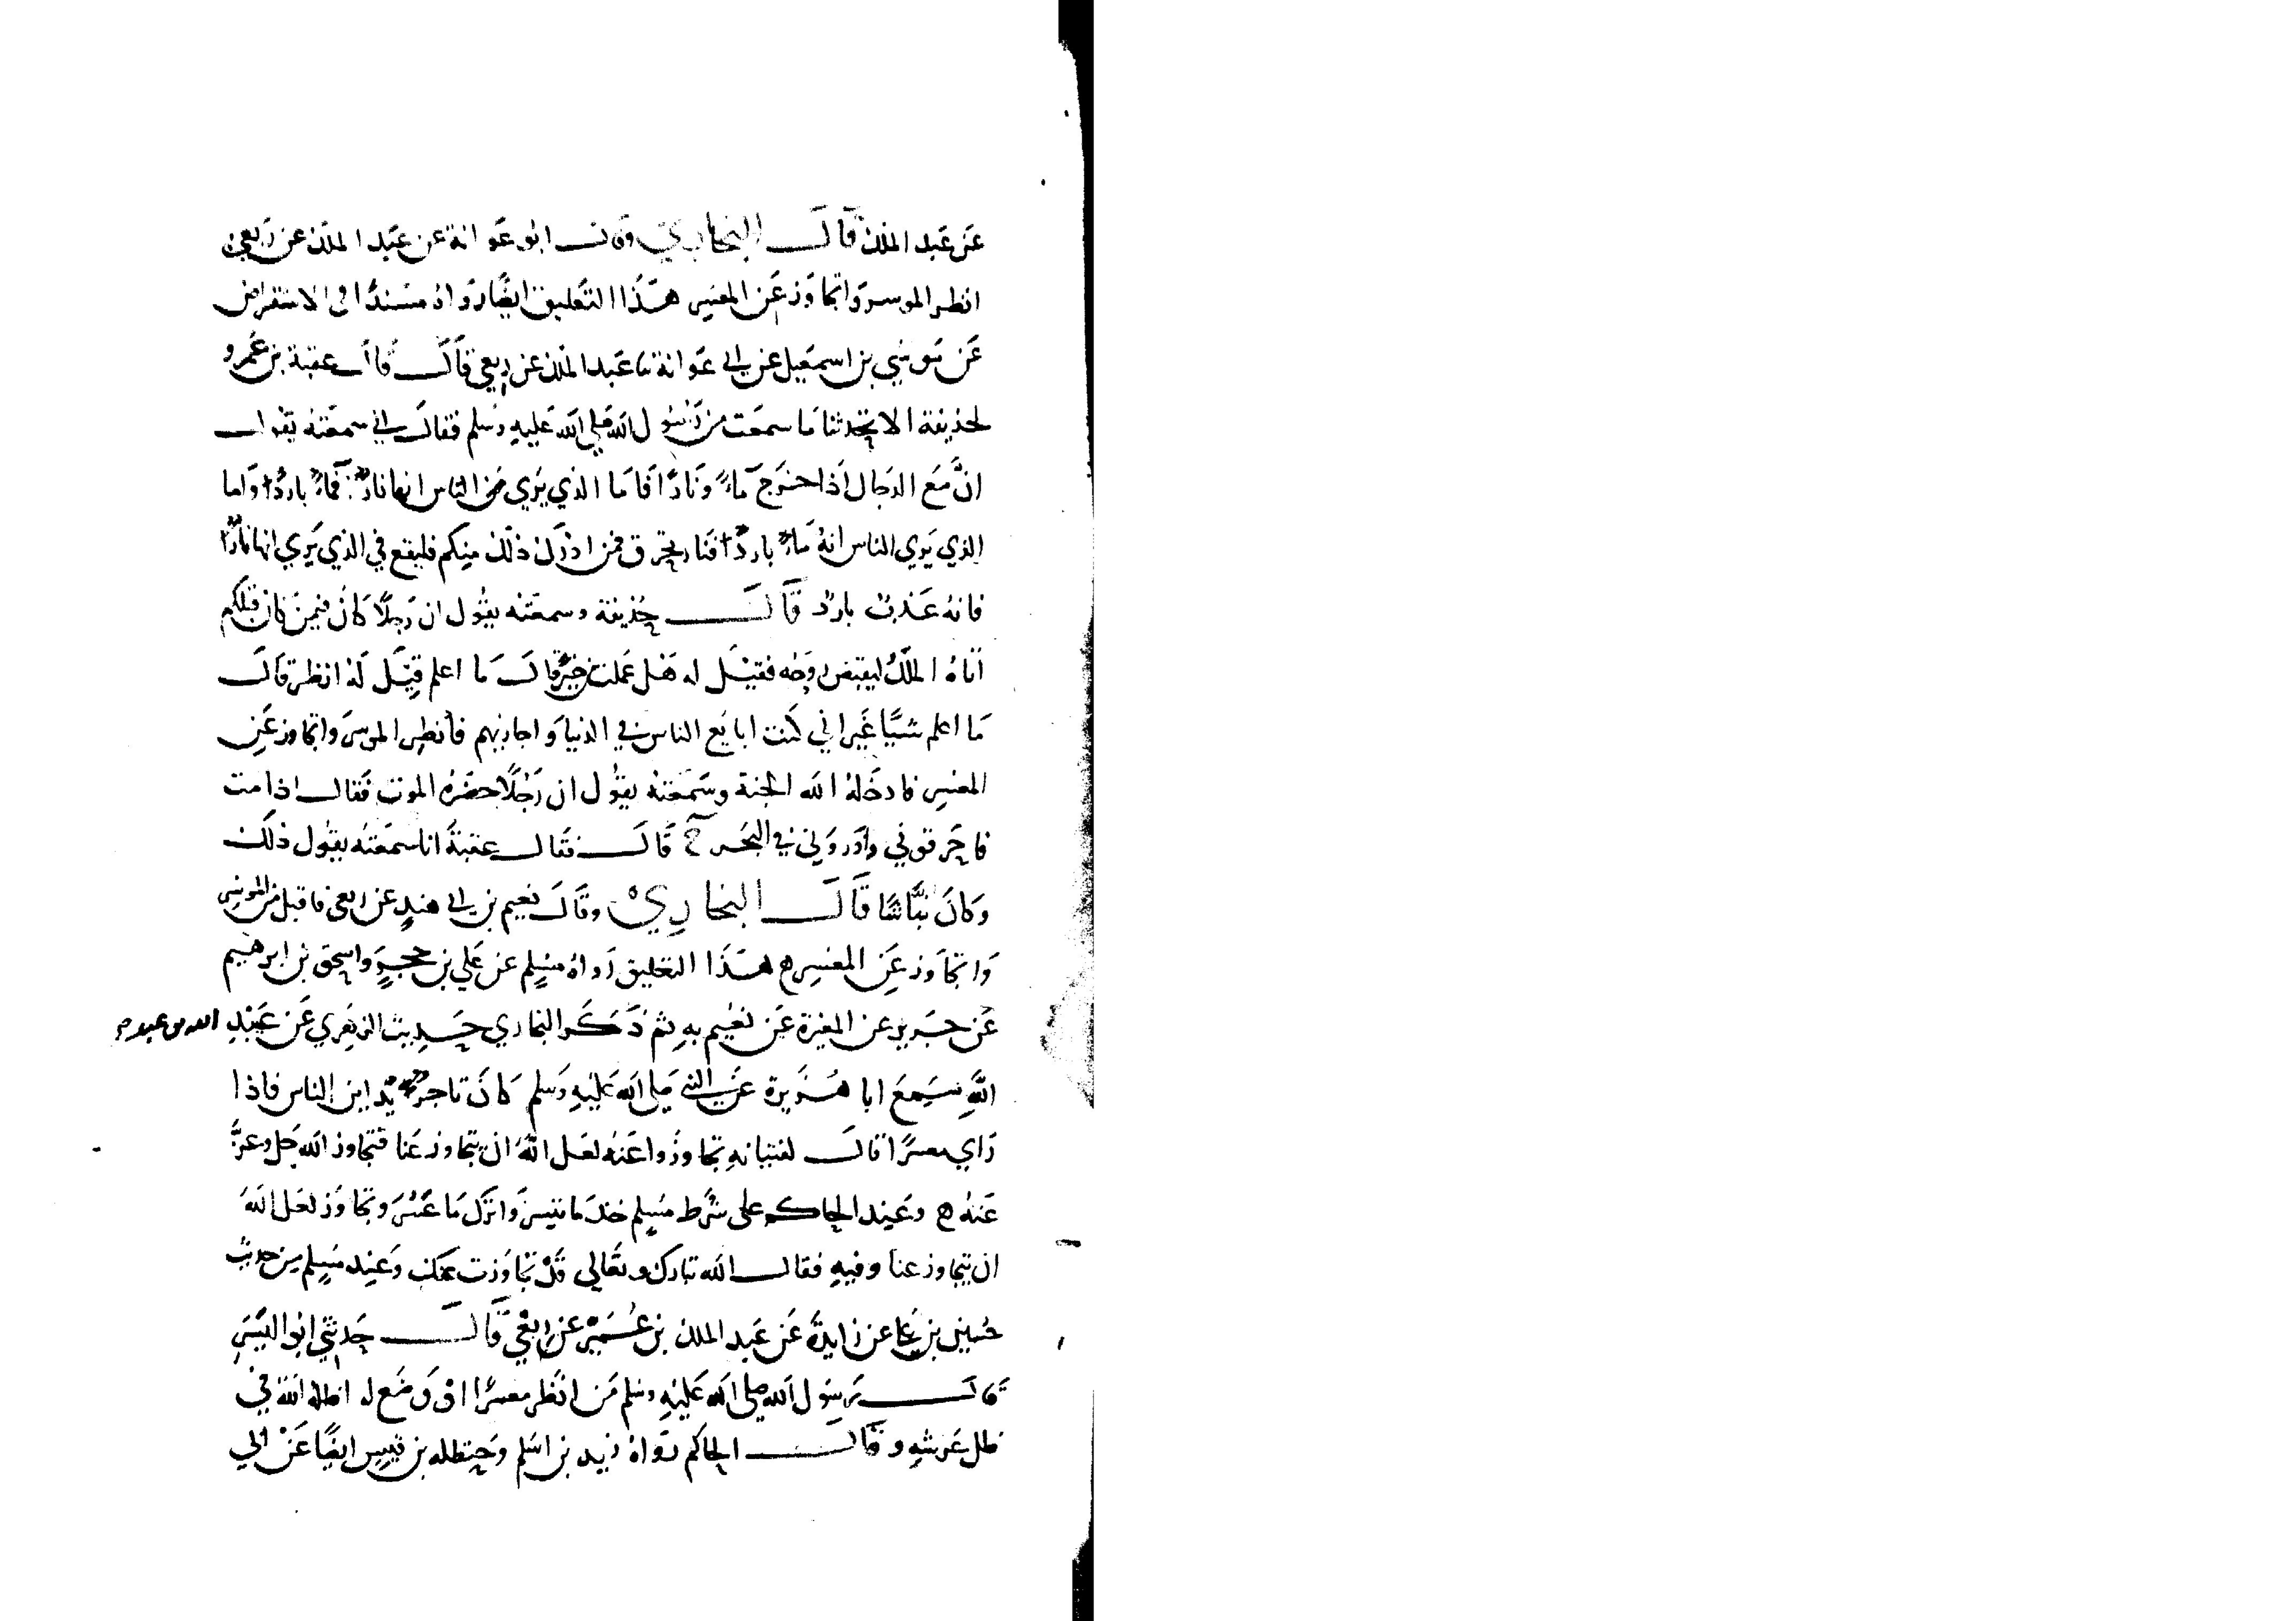 عن عبد الملك قال البخاري وقال ابو عوانة عن عبد الملك عن ربعي
انظر الموسر واتجاوز عن المعسر هذا التعليق ايضا رواه مسندا في الاستقراض
عن موسي بن اسمعيل عن ابي عوانة ثنا عبد الملك عن ربعي قال قال عقبة بن عمرو
لحذيفة الا تحدثنا ما سمعت من رسول الله صلى الله عليه وسلم فقال اني سمعته يقول
ان مع الدجال اذا خرج ماء ونارا فاما الذي يري من الناس انها نار فماء باردا واما
الذي يري الناس انه ماء باردا فنار تحرق فمن ادرك ذلك منكم فليقع في الذي يري انها نارا
فانه عذب بارد قال حذيفة وسمعته يقول ان رجلا كان فيمن كان قبلكم
اتاه الملك ليقبض روحه فقيل له هل عملت من خير قال ما اعلم قيل له انظر قال
ما اعلم شيئا غير اني كنت ابايع الناس في الدنيا واجازيهم فانظر الموسر واتجاوز عن
المعسر فادخله الله الجنة وسمعته يقول ان رجلا حضره الموت فقال اذا مت
فاحرقوني وادروني في البحر ح قال فقال عقبة انا سمعته يقول ذلك
وكان نباشا قال البخاري وقال نعيم بن ابي هند عن ربعي فاقبل من الموسر
واتجاوز عن المعسر ه هذا التعليق رواه مسلم عن علي بن حجر واسحق بن ابرهيم
عن جرير عن المغيرة عن نعيم به ثم ذكر البخاري حديث الزهري عن عبيد الله بن عبد
الله سمع ابا هريرة عن النبي صلى الله عليه وسلم كان تاجر يداين الناس فاذا
راي معسرا قال لفتيانه تجاوزوا عنه لعل الله ان يتجاوز عنا فتجاوز الله جل وعز
عنه ه وعند الحاكم على شرط مسلم خذ ما تيسر واترك ما عسر وتجاوز لعل الله
ان يتجاوز عنا وفيه فقال الله تبارك وتعالي قد تجاوزت عنك وعند مسلم من حديث
حسين بن علي عن زايدة عن عبد الملك بن عمير عن ربعي قال حدثني ابو اليسر
قال رسول الله صلى الله عليه وسلم من انظر معسرا او وضع له اظله الله في
ظل عرشه وقال الحاكم رواه زيد بن اسلم وحنظله بن قيس ايضا عن ابي